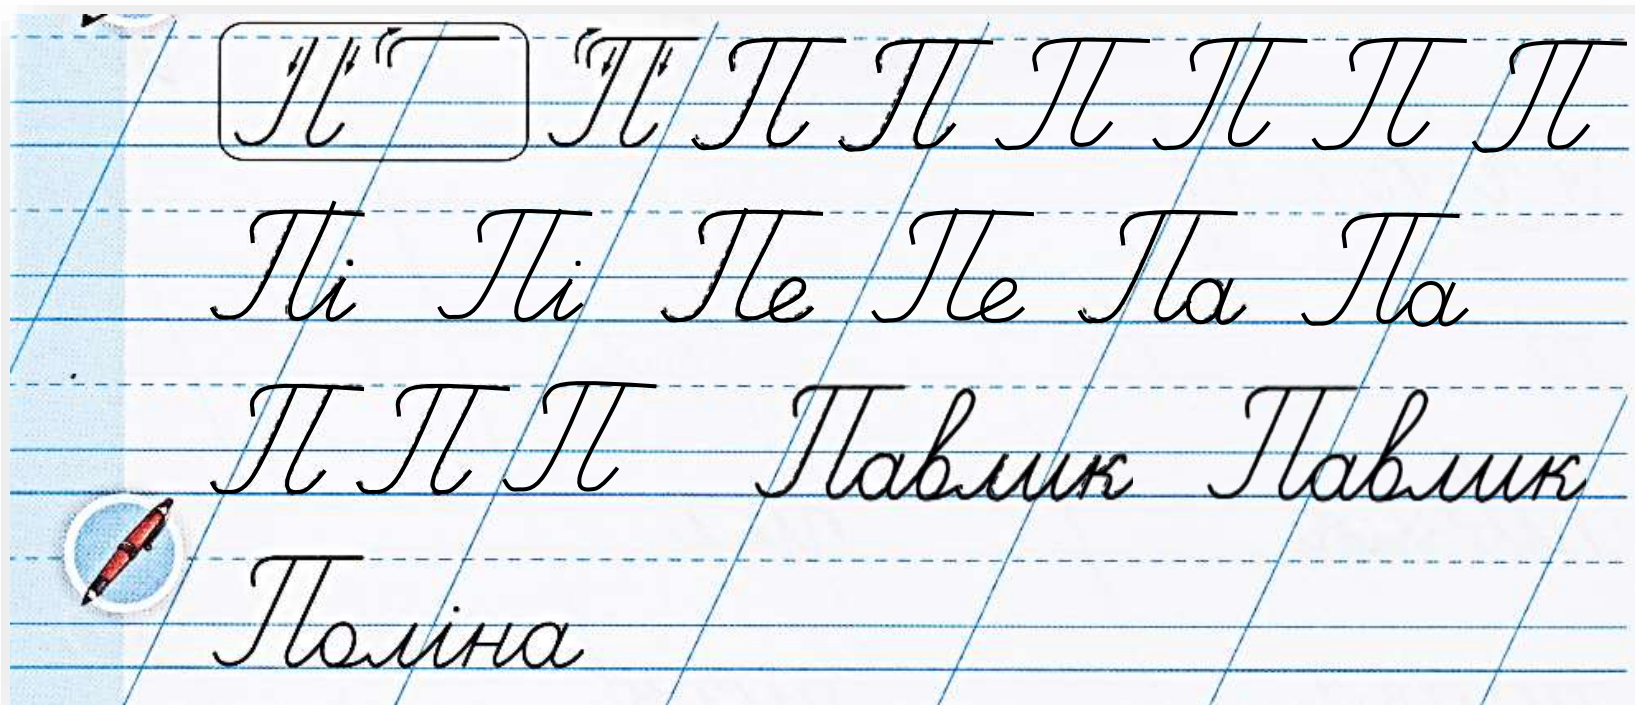 П П П П П П П
Пі Пі Пе Пе Па Па
П П П Павлик Павлик
Поліна